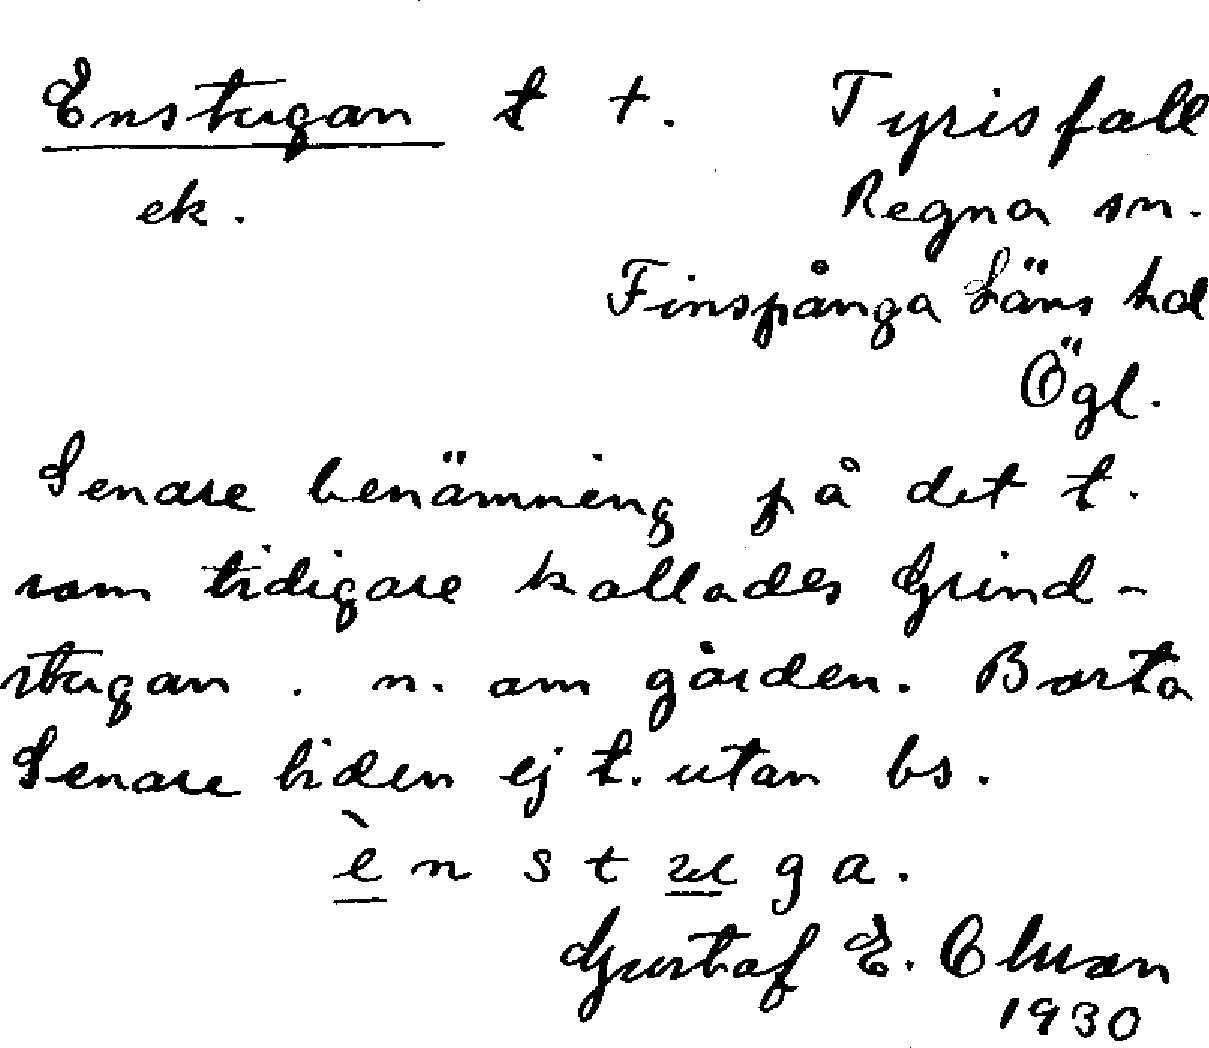 Enstugan t †. Tyrisfall
ek. Regna sn.
Finspånga Läns hd
Ögl.
Senare benämning på det t.
som tidigare kallades Grind-
stugan. n. om gården. Borta
Senare tiden ej t. utan bs.
è n s t u g a.
Gustaf E.
1930